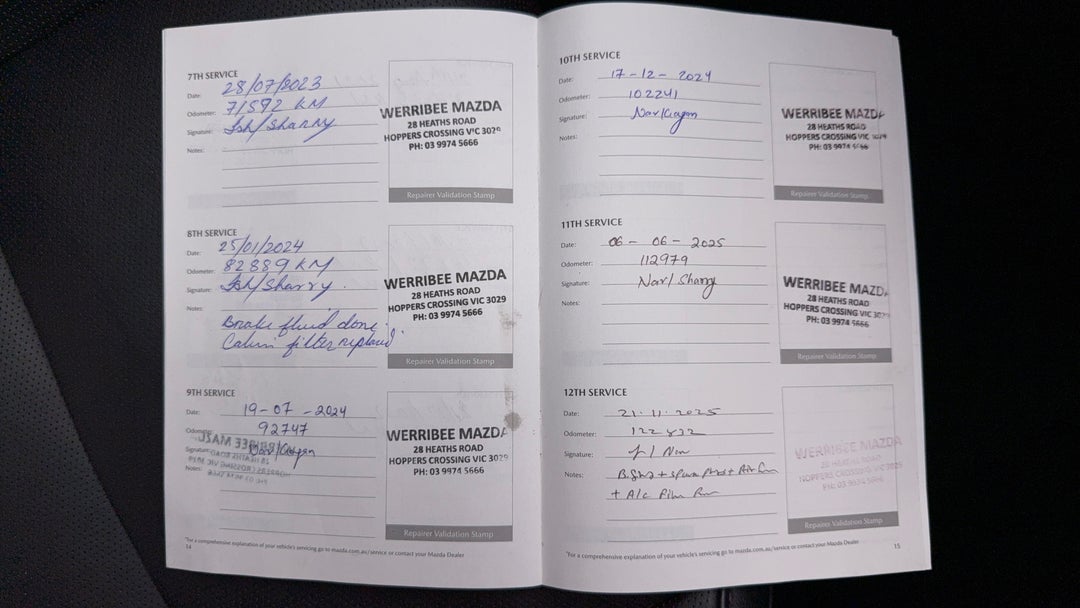 7TH SERVICE
Date: 28/07/2023
Odometer: 71592 KM
Signature: Ish/Sharry
Notes:
WERRIBEE MAZDA
28 HEATHS ROAD
HOPPERS CROSSING VIC 3029
PH: 03 9974 5666
Repairer Validation Stamp
8TH SERVICE
Date: 25/01/2024
Odometer: 82889 KM
Signature: Ish/Sharry.
Notes:
Brake fluid done.
Cabin filter replaced.
WERRIBEE MAZDA
28 HEATHS ROAD
HOPPERS CROSSING VIC 3029
PH: 03 9974 5666
Repairer Validation Stamp
9TH SERVICE
Date: 19-07-2024
Odometer: 92747
Signature:
Notes:
WERRIBEE MAZDA
28 HEATHS ROAD
HOPPERS CROSSING VIC 3029
PH: 03 9974 5666
Repairer Validation Stamp
*For a comprehensive explanation of your vehicle's servicing go to mazda.com.au/service or contact your Mazda Dealer
14
10TH SERVICE
Date: 17-12-2024
Odometer: 102241
Signature:
Notes:
WERRIBEE MAZDA
28 HEATHS ROAD
HOPPERS CROSSING VIC 3029
PH: 03 9974 5666
Repairer Validation Stamp
11TH SERVICE
Date: 06-06-2025
Odometer: 112979
Signature: Nav/Sharry
Notes:
WERRIBEE MAZDA
28 HEATHS ROAD
HOPPERS CROSSING VIC 3029
PH: 03 9974 5666
Repairer Validation Stamp
12TH SERVICE
Date: 21.11.2025
Odometer: 122832
Signature:
Notes:
+ A/c
WERRIBEE MAZDA
28 HEATHS ROAD
HOPPERS CROSSING VIC 3029
PH: 03 9974 5666
Repairer Validation Stamp
*For a comprehensive explanation of your vehicle's servicing go to mazda.com.au/service or contact your Mazda Dealer
15